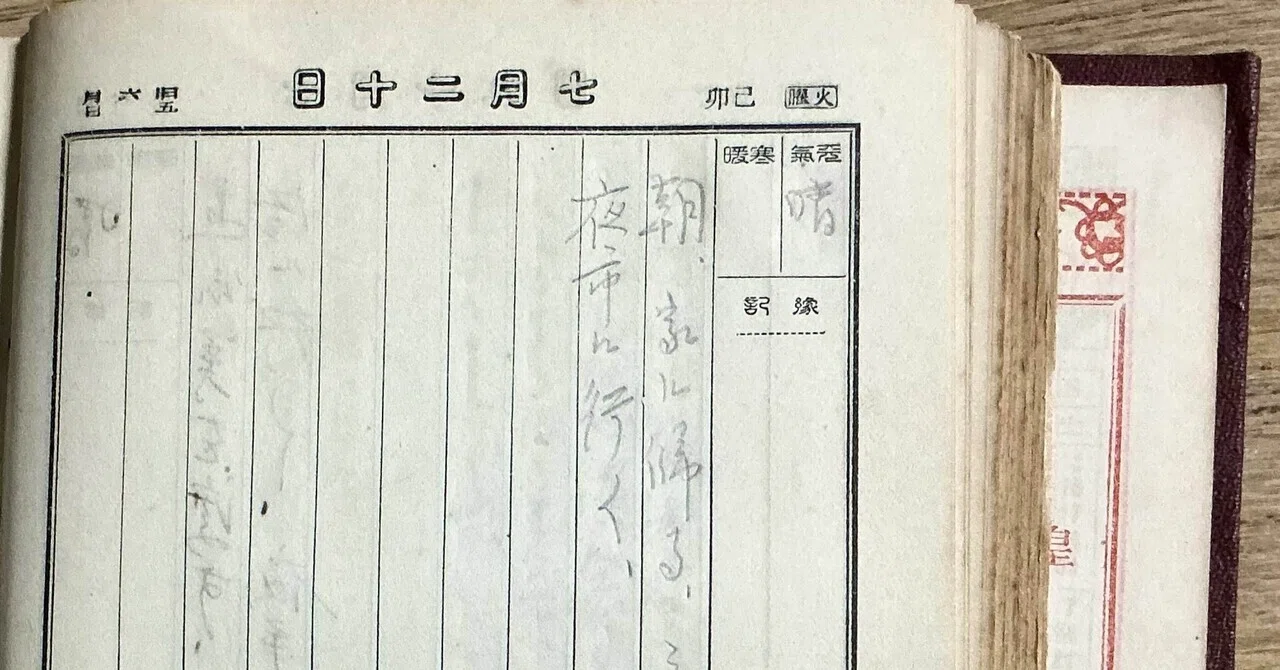 七月二十日
火曜 己卯
旧五月六日
天氣 寒暖
晴
緣記
朝、家に歸る、
夜市に行く、
皇